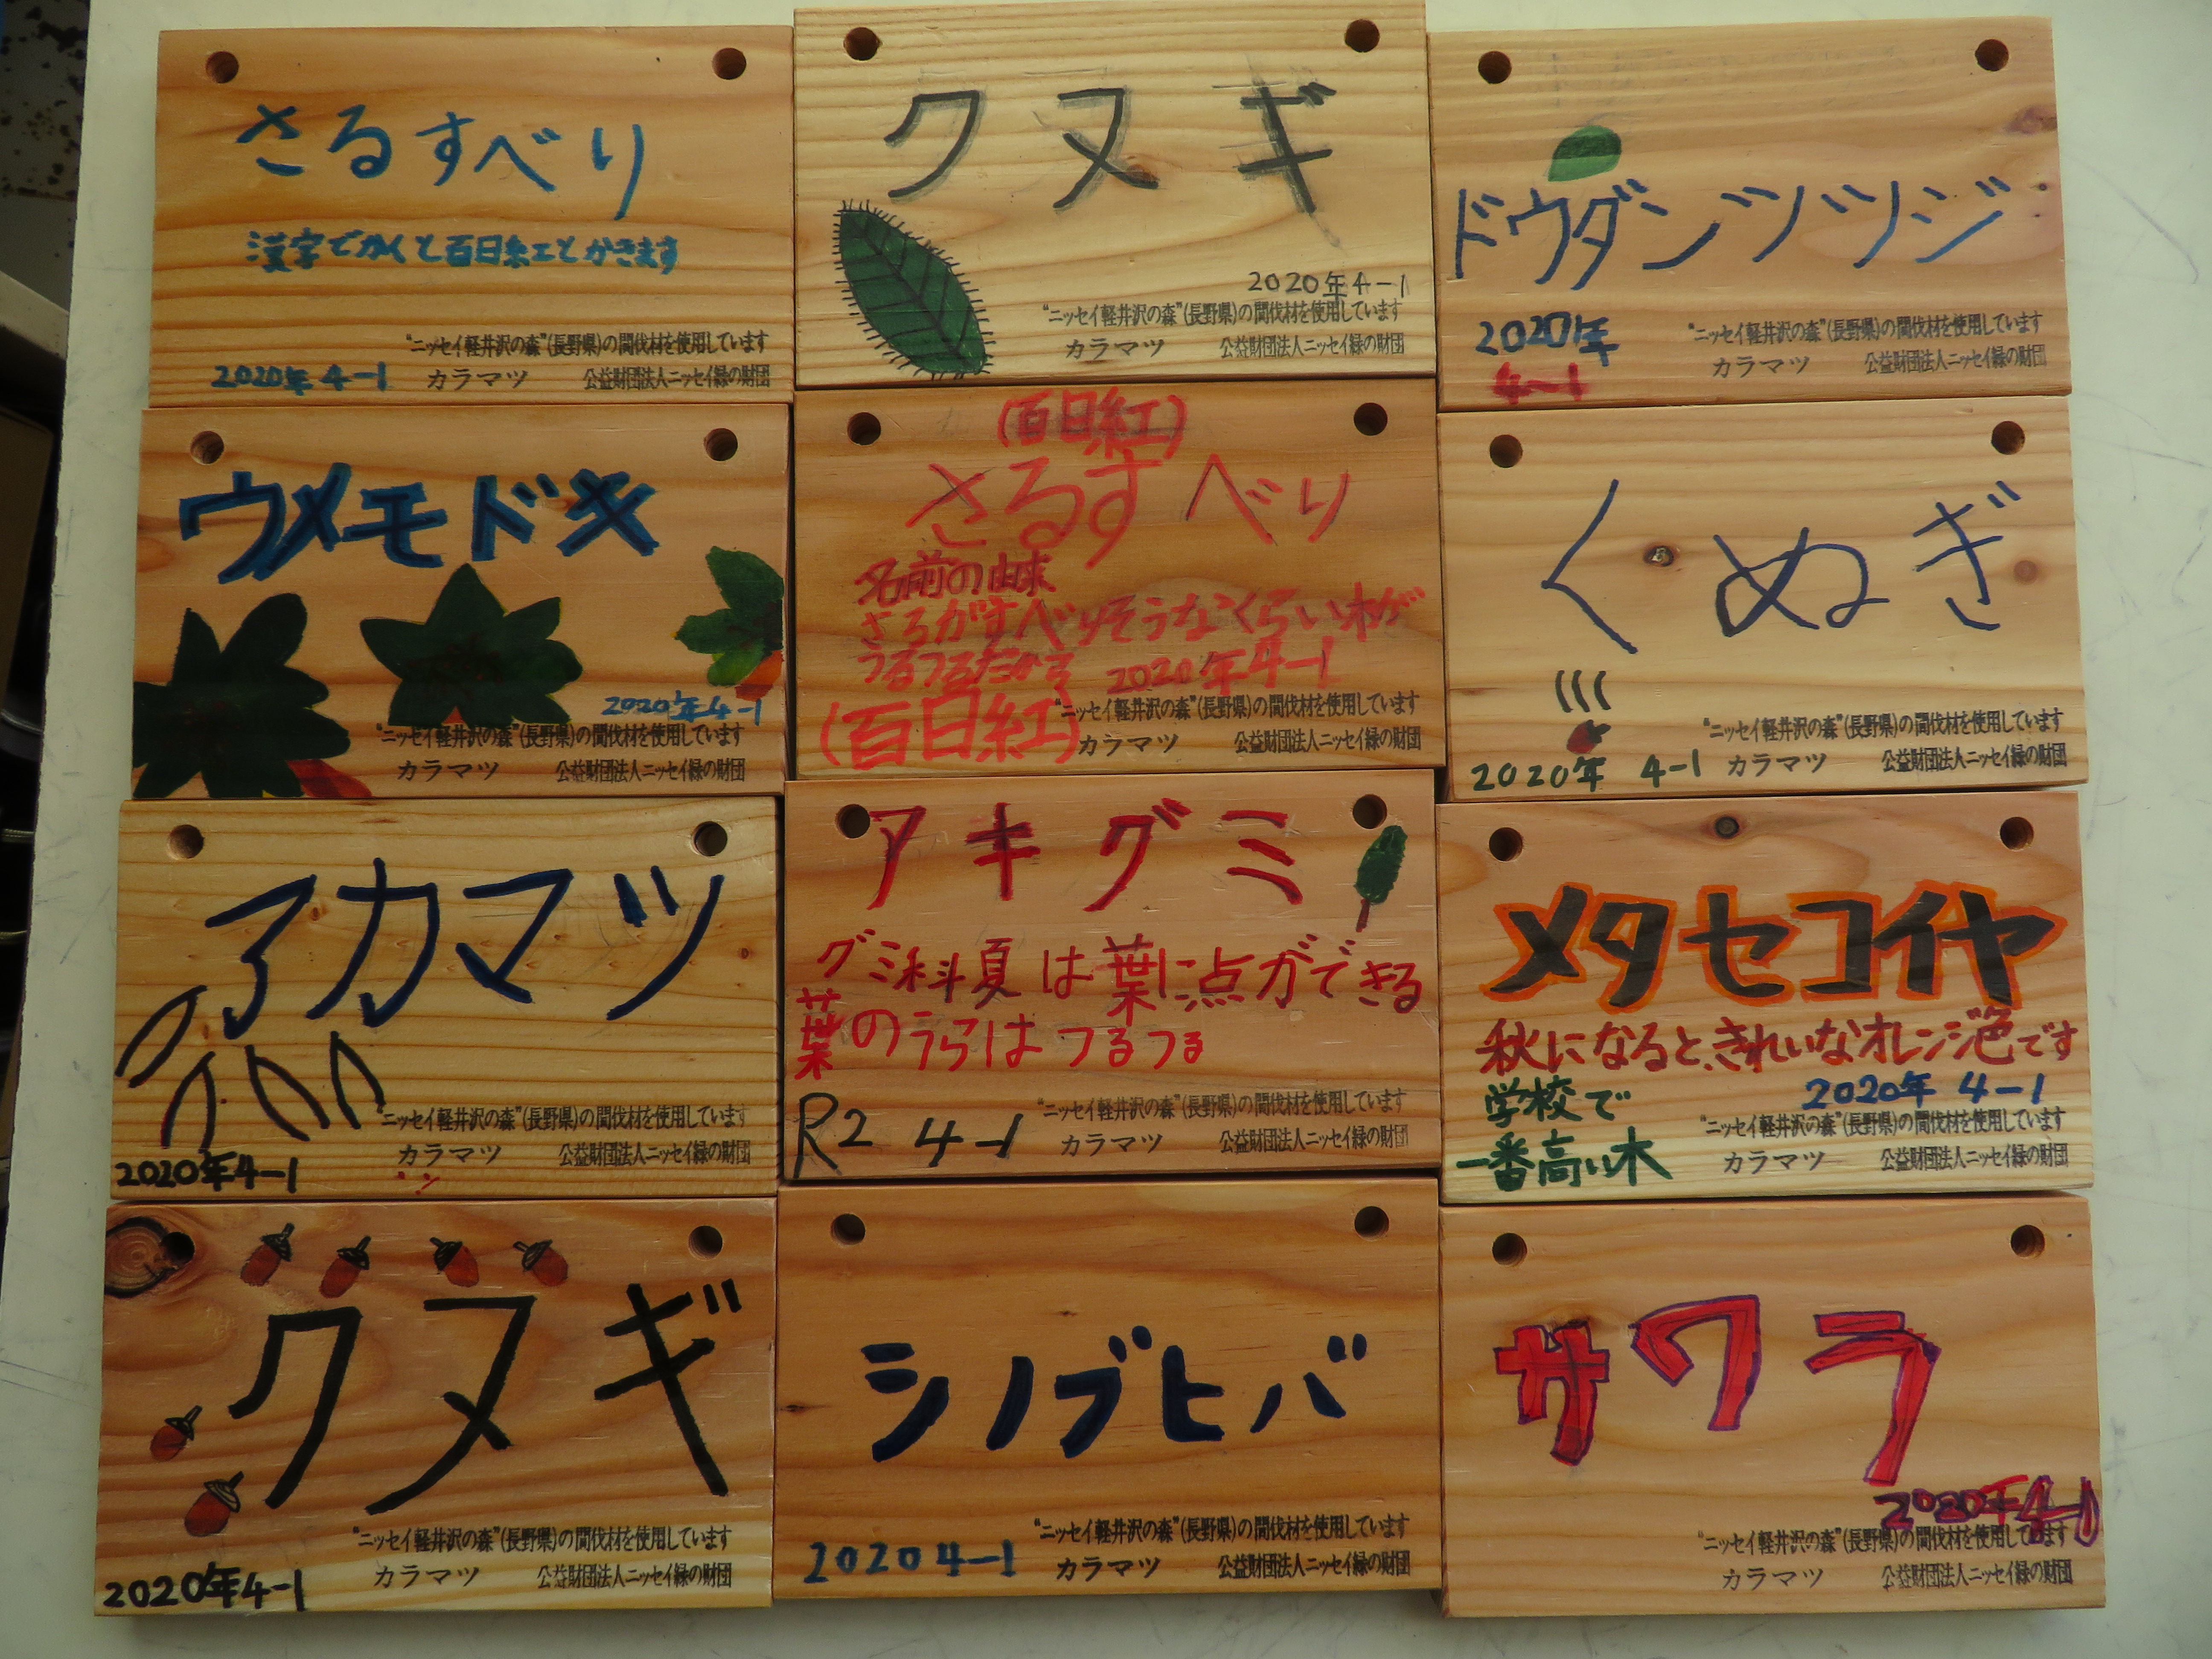 さるすべり
漢字でかくと百日紅とかきます
"ニッセイ軽井沢の森"(長野県)の間伐材を使用しています
2020年4-1 カラマツ 公益財団法人ニッセイ緑の財団
クヌギ
2020年4-1
"ニッセイ軽井沢の森"(長野県)の間伐材を使用しています
カラマツ 公益財団法人ニッセイ緑の財団
ドウダンツツジ
2020年
4-1
"ニッセイ軽井沢の森"(長野県)の間伐材を使用しています
カラマツ 公益財団法人ニッセイ緑の財団
ウメモドキ
2020年4-1
"ニッセイ軽井沢の森"(長野県)の間伐材を使用しています
カラマツ 公益財団法人ニッセイ緑の財団
(百日紅)
さるすべり
名前の由来
さるがすべりそうなくらいきが
つるつるだから 2020年4-1
(百日紅)
"ニッセイ軽井沢の森"(長野県)の間伐材を使用しています
カラマツ 公益財団法人ニッセイ緑の財団
くぬぎ
2020年 4-1
"ニッセイ軽井沢の森"(長野県)の間伐材を使用しています
カラマツ 公益財団法人ニッセイ緑の財団
アカマツ
"ニッセイ軽井沢の森"(長野県)の間伐材を使用しています
カラマツ 公益財団法人ニッセイ緑の財団
2020年4-1
アキグミ
グミ科夏は葉に点ができる
葉のうらはつるつる
R2 4-1
"ニッセイ軽井沢の森"(長野県)の間伐材を使用しています
カラマツ 公益財団法人ニッセイ緑の財団
メタセコイヤ
秋になると、きれいなオレンジ色です
学校で
一番高い木
2020年 4-1
"ニッセイ軽井沢の森"(長野県)の間伐材を使用しています
カラマツ 公益財団法人ニッセイ緑の財団
クヌギ
"ニッセイ軽井沢の森"(長野県)の間伐材を使用しています
カラマツ 公益財団法人ニッセイ緑の財団
2020年4-1
シノブヒバ
2020 4-1
"ニッセイ軽井沢の森"(長野県)の間伐材を使用しています
カラマツ 公益財団法人ニッセイ緑の財団
サワラ
2020年4-1
"ニッセイ軽井沢の森"(長野県)の間伐材を使用しています
カラマツ 公益財団法人ニッセイ緑の財団